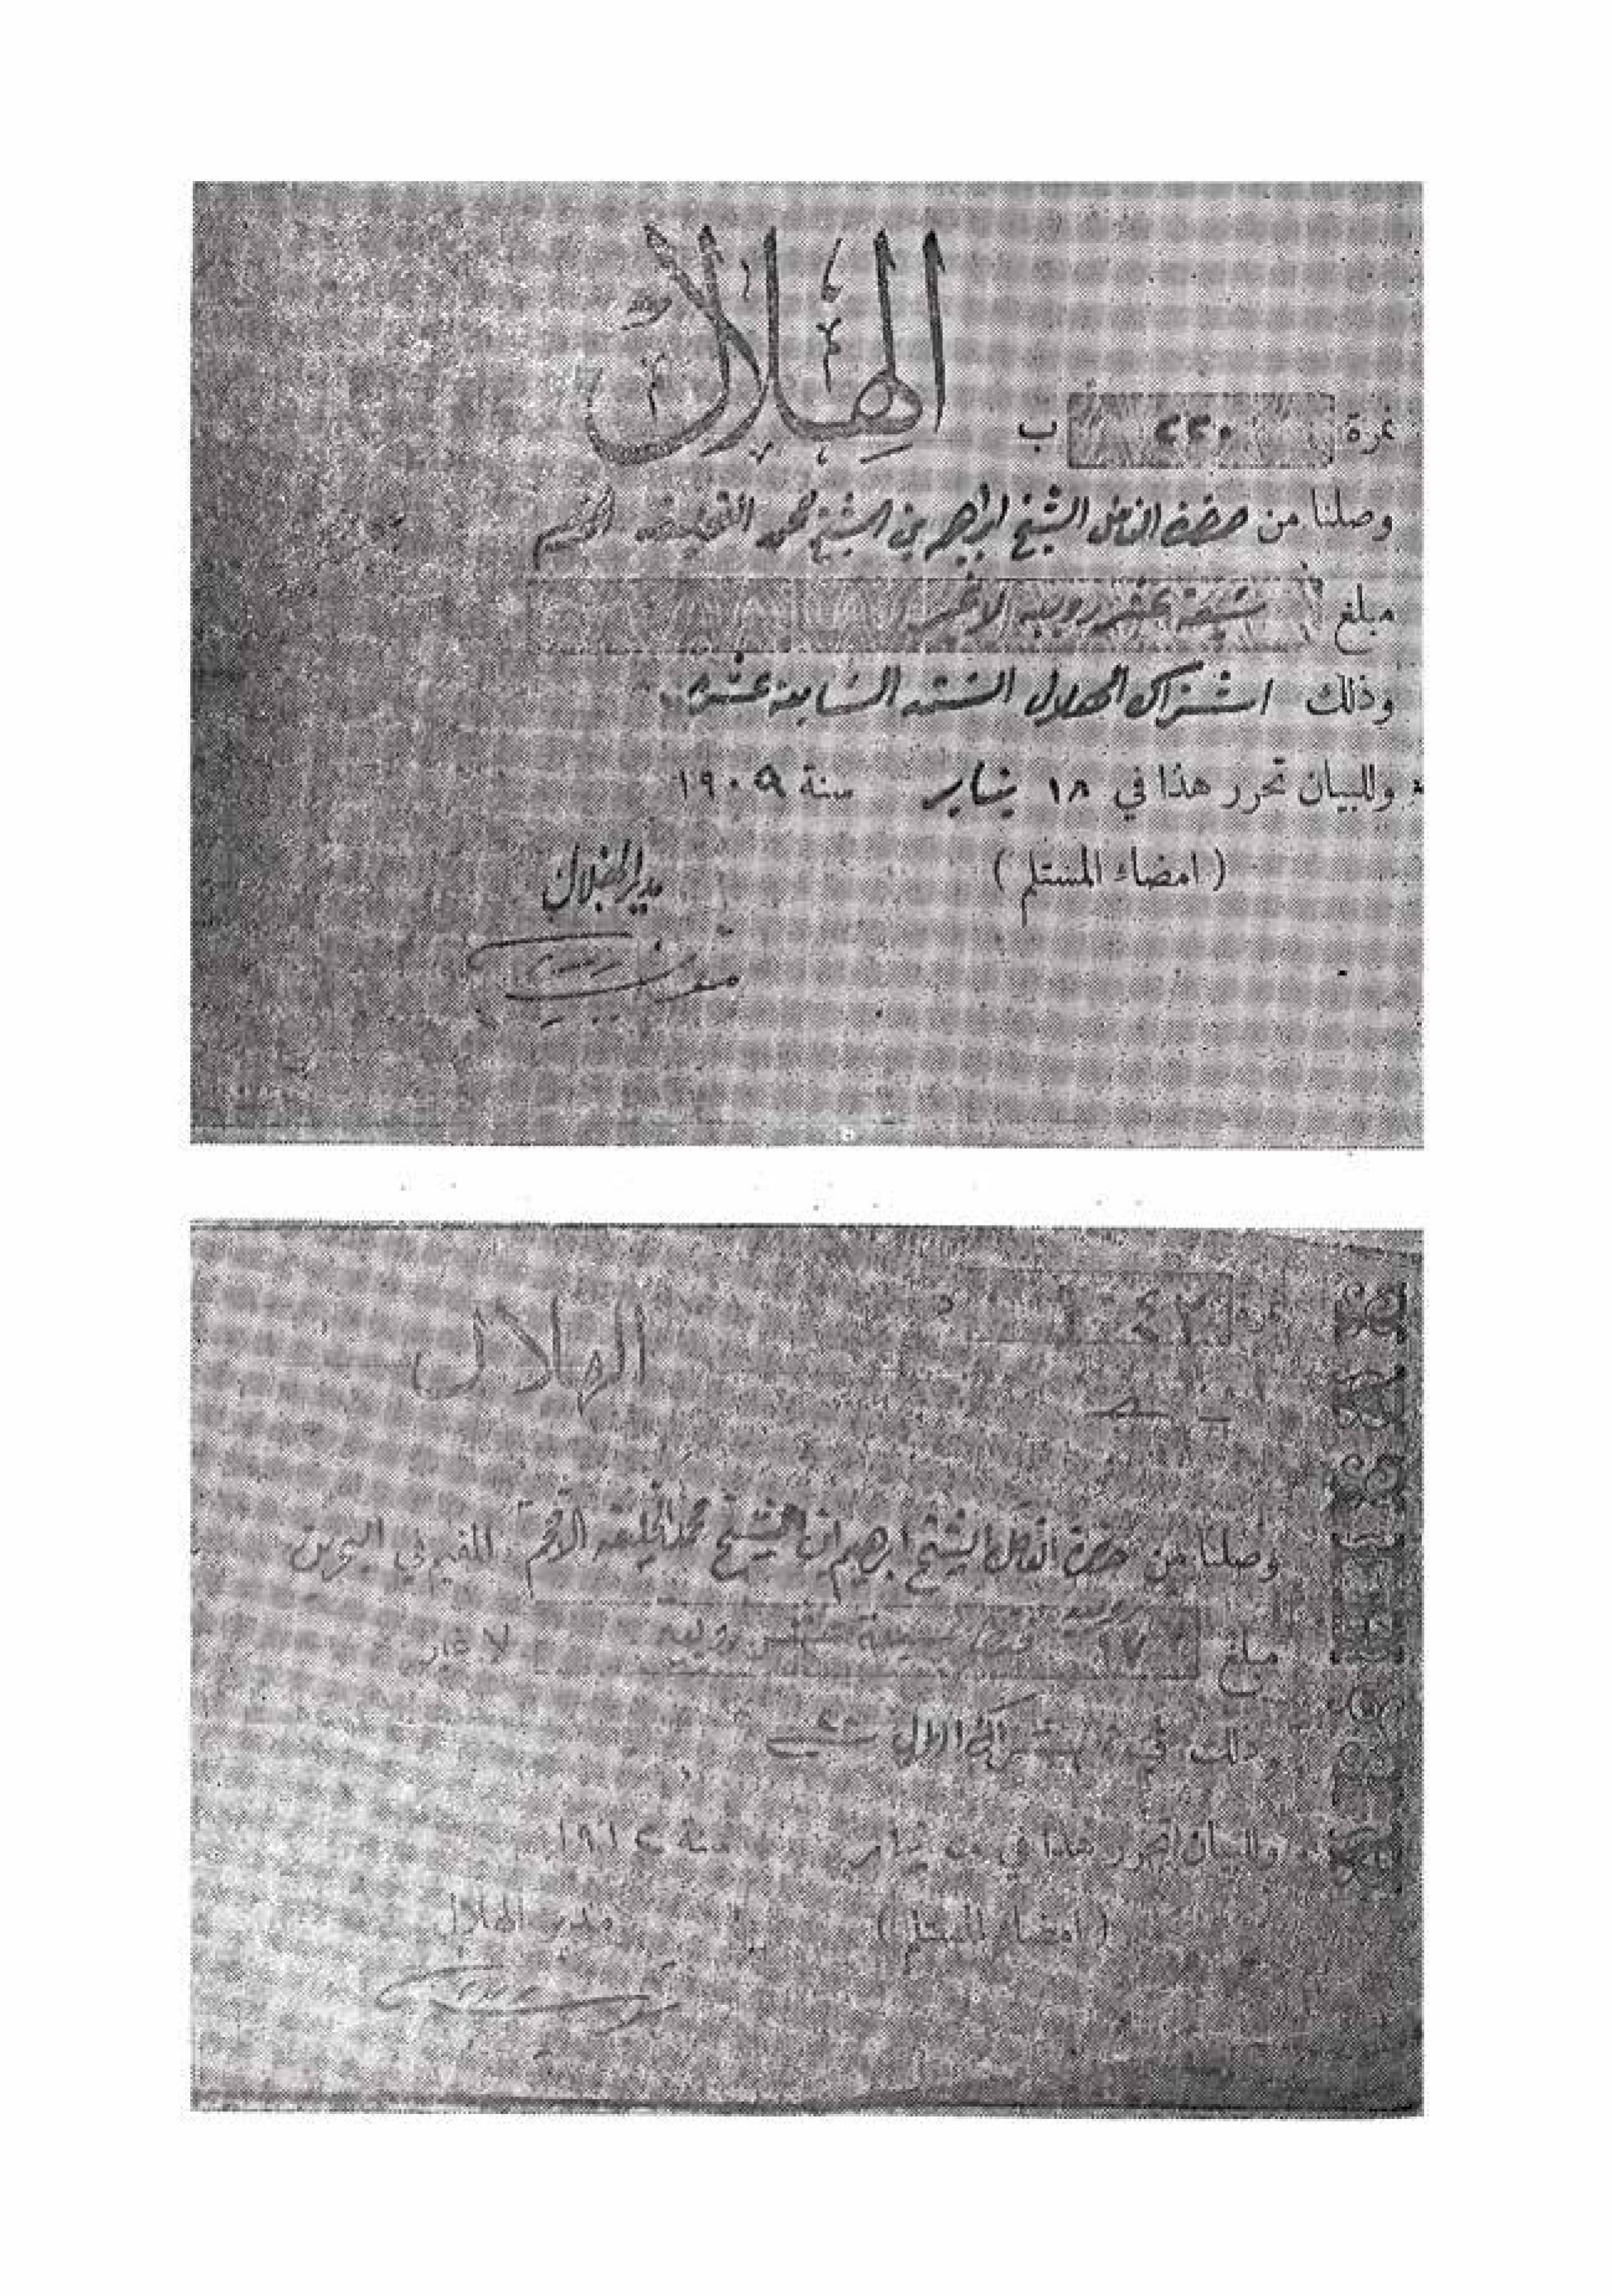 الهلال
نمرة ٢٢٠ ب
وصلنا من حضرة الفاضل الشيخ ابراهيم بن الشيخ محمد
مبلغ سبعة عشر روبيه لا غير
وذلك اشتراك الهلال السنة السابعة عشره
وللبيان تحرر هذا في ١٨ يناير سنة ١٩٠٩
(امضاء المستلم) مدير الهلال
الهلال
وصلنا من حضرة الفاضل الشيخ ابرهيم ابن الشيخ محمد الخليفه الافخم المقيم في البحرين
مبلغ ١٧ فقط سبعة عشر روبيه لا غير
وذلك قيمة اشتراك الهلال
وللبيان تحرر هذا في يناير سنة ١٩١٢
(امضاء المستلم) مدير الهلال